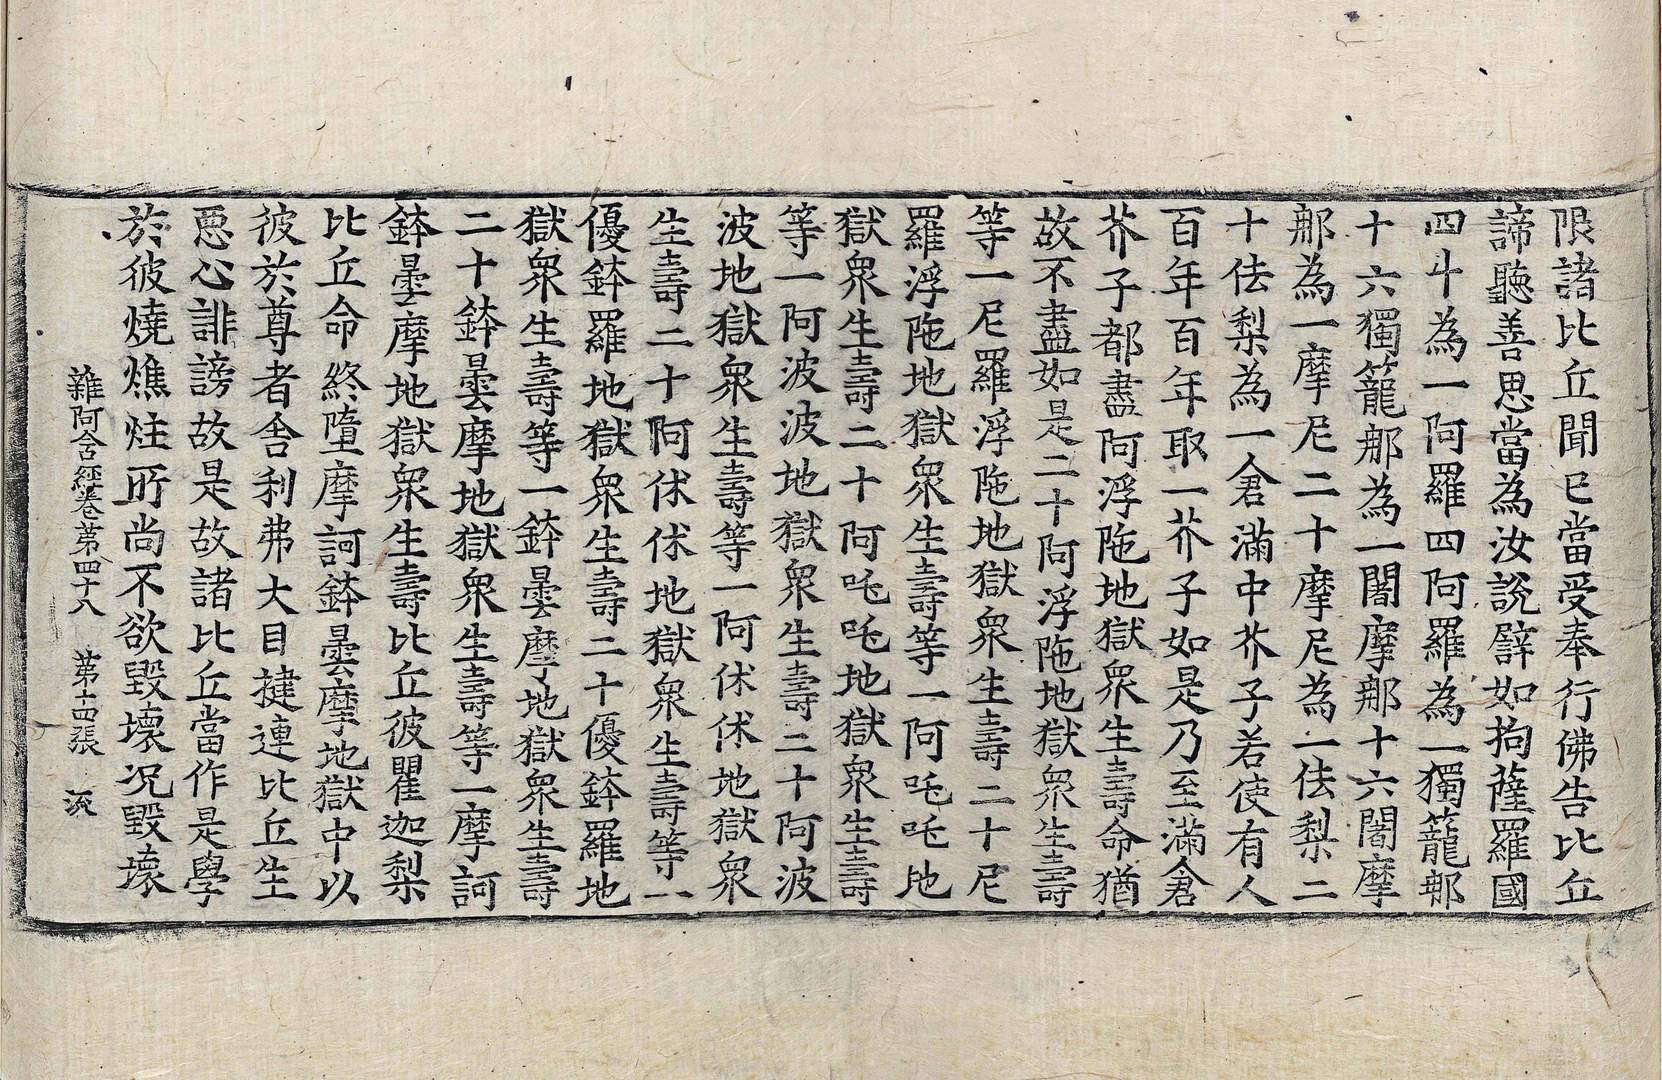 限諸比丘聞已當受奉行佛告比丘
諦聽善思當為汝說譬如拘薩羅國
四斗為一阿羅四阿羅為一獨籠那
十六獨籠那為一闍摩那十六闍摩
那為一摩尼二十摩尼為一佉梨二
十佉梨為一倉滿中芥子若使有人
百年百年取一芥子如是乃至滿倉
芥子都盡阿浮陁地獄衆生壽命猶
故不盡如是二十阿浮陁地獄衆生壽
等一尼羅浮陁地獄衆生壽二十尼
羅浮陁地獄衆生壽等一阿吒吒地
獄衆生壽二十阿吒吒地獄衆生壽
等一阿波波地獄衆生壽二十阿波
波地獄衆生壽等一阿休休地獄衆
生壽二十阿休休地獄衆生壽等一
優鉢羅地獄衆生壽二十優鉢羅地
獄衆生壽等一鉢曇摩地獄衆生壽
二十鉢曇摩地獄衆生壽等一摩訶
鉢曇摩地獄衆生壽比丘彼瞿迦梨
比丘命終墮摩訶鉢曇摩地獄中以
彼於尊者舍利弗大目揵連比丘生
惡心誹謗故是故諸比丘當作是學
於彼燒燋炷所尚不欲毀壞況毀壞
雜阿含經卷第四十八　第十四張　流